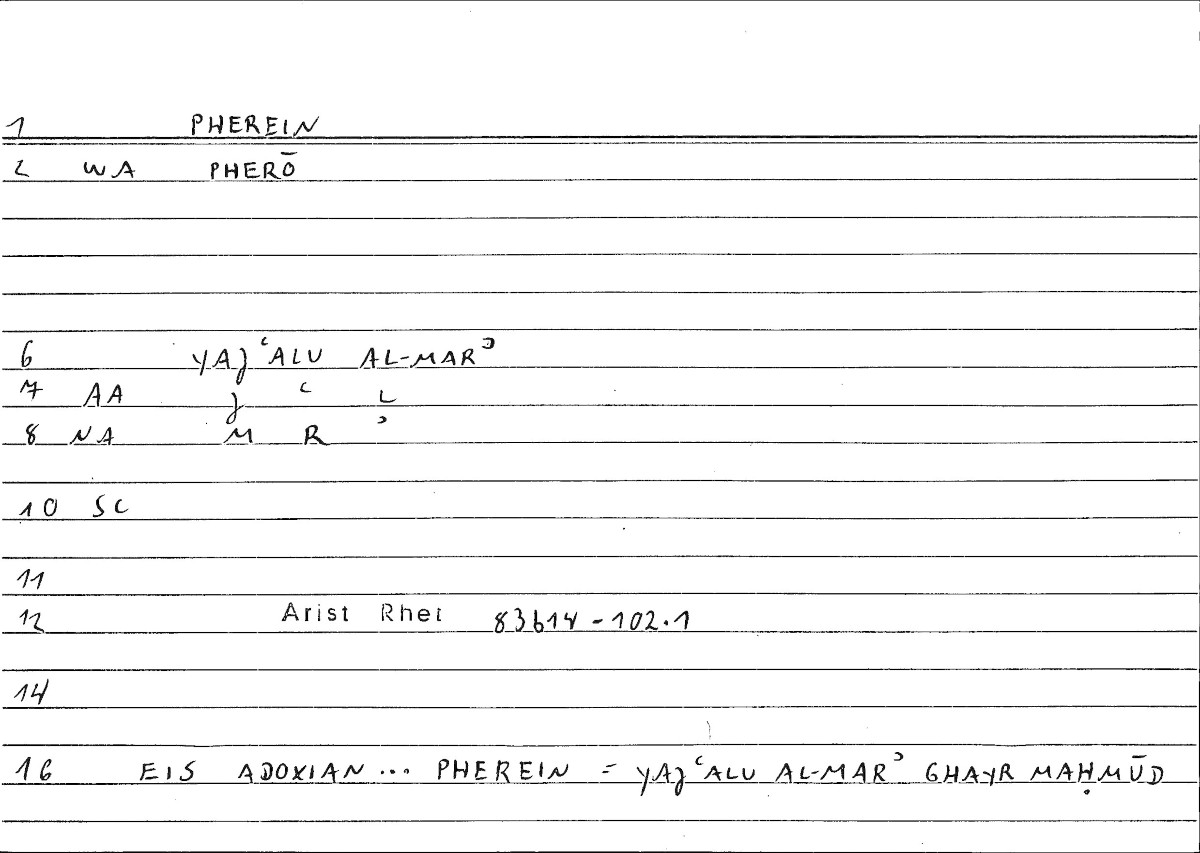 1 PHEREIN
2 WA PHERŌ
6 YAJʿALU AL-MARʾ
7 AA J ʿ L
8 NA M R ʾ
10 SC
11
12 Arist Rhet 83b14-102.1
14
16 EIS ADOXIAN ... PHEREIN = YAJʿALU AL-MARʾ GHAYR MAḤMŪD